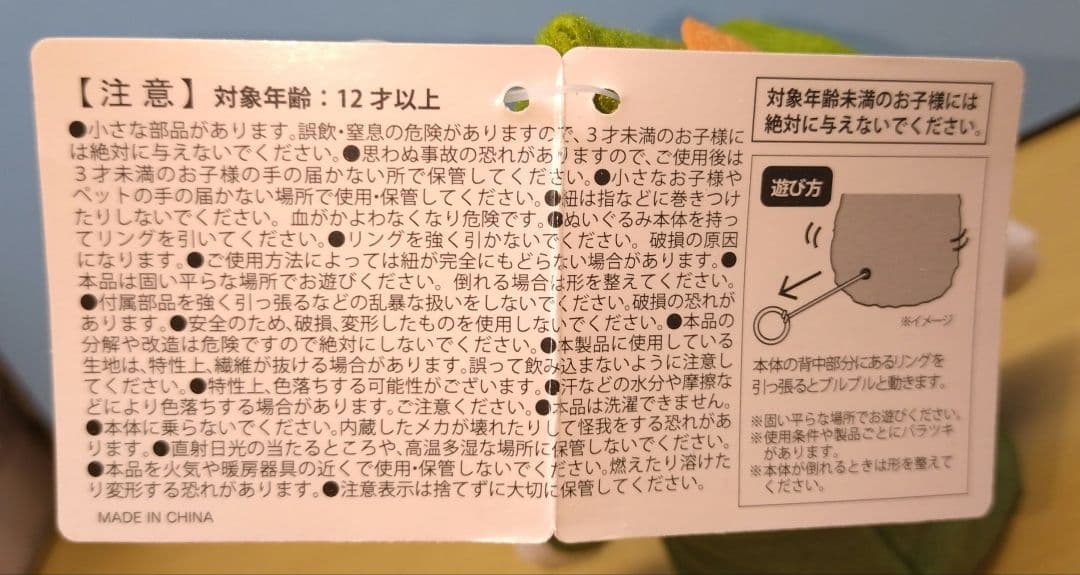 【注意】対象年齢：12才以上
●小さな部品があります。誤飲・窒息の危険がありますので、3才未満のお子様に
は絶対に与えないでください。●思わぬ事故の恐れがありますので、ご使用後は
3才未満のお子様の手の届かない所で保管してください。●小さなお子様や
ペットの手の届かない場所で使用・保管してください。●紐は指などに巻きつけ
たりしないでください。血がかよわなくなり危険です。●ぬいぐるみ本体を持っ
てリングを引いてください。●リングを強く引かないでください。破損の原因
になります。●ご使用方法によっては紐が完全にもどらない場合があります。●
本品は固い平らな場所でお遊びください。倒れる場合は形を整えてください。
●付属部品を強く引っ張るなどの乱暴な扱いをしないでください。破損の恐れが
あります。●安全のため、破損、変形したものを使用しないでください。●本品の
分解や改造は危険ですので絶対にしないでください。●本製品に使用している
生地は、特性上、繊維が抜ける場合があります。誤って飲み込まないように注意し
てください。●特性上、色落ちする可能性がございます。●汗などの水分や摩擦な
どにより色落ちする場合があります。ご注意ください。●本品は洗濯できません。
●本体に乗らないでください。内蔵したメカが壊れたりして怪我をする恐れがあ
ります。●直射日光の当たるところや、高温多湿な場所に保管しないでください。
●本品を火気や暖房器具の近くで使用・保管しないでください。燃えたり溶けた
り変形する恐れがあります。●注意表示は捨てずに大切に保管してください。
MADE IN CHINA
対象年齢未満のお子様には
絶対に与えないでください。
遊び方
※イメージ
本体の背中部分にあるリングを
引っ張るとブルブルと動きます。
※固い平らな場所でお遊びください。
※使用条件や製品ごとにバラツキ
があります。
※本体が倒れるときは形を整えて
ください。